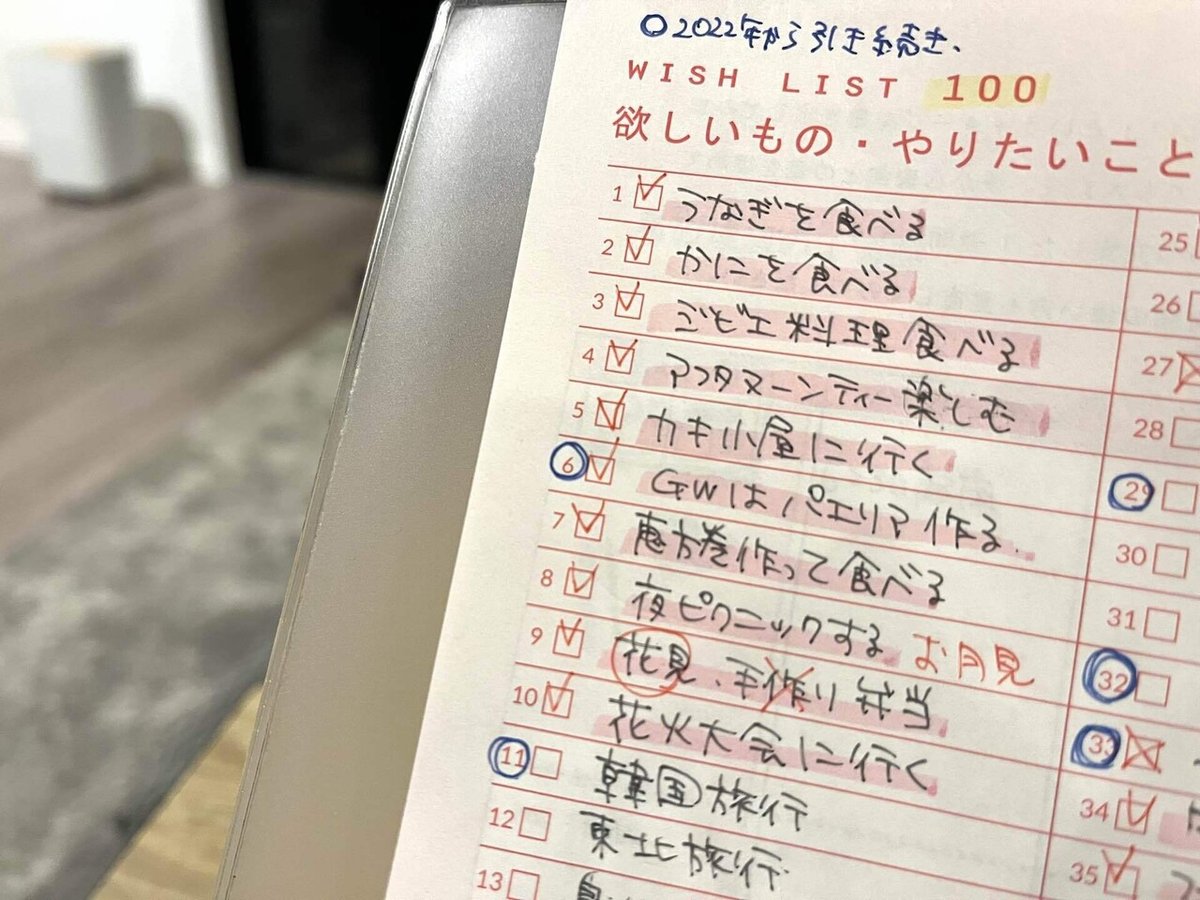 ○2022年から引き続き、
WISH LIST 100
欲しいもの・やりたいこと
1 うなぎを食べる
2 かにを食べる
3 ジビエ料理食べる
4 アフタヌーンティー楽しむ
5 カキ小屋に行く
6 GWはパエリア作る
7 恵方巻作って食べる
8 夜ピクニックする お月見
9 花見、手作り弁当
10 花火大会に行く
11 韓国旅行
12 東北旅行
13
25
26
27
28
29
30
31
32
33
34
35